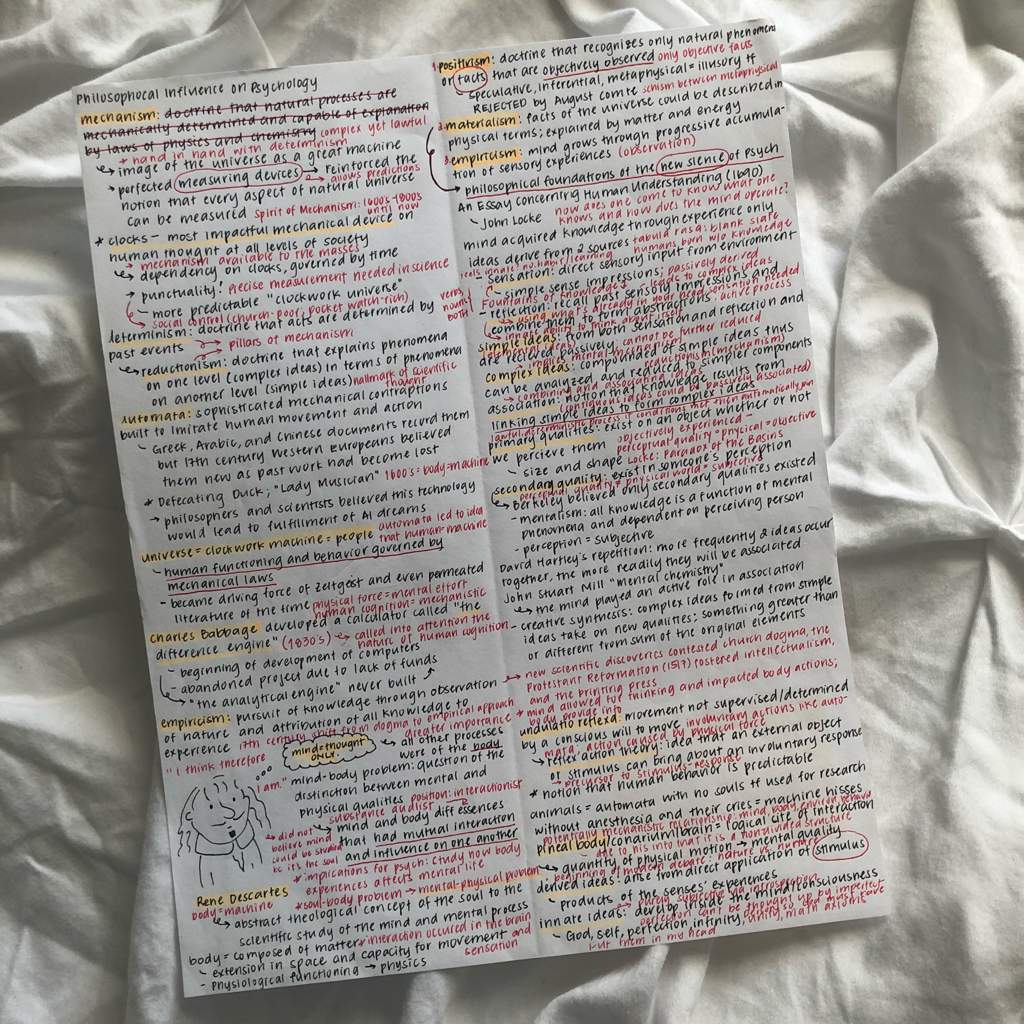 Philosophocal Influence on Psychology
mechanism: doctrine that natural processes are
mechanically determined and capable of explanation
by laws of physics and chemistry complex yet lawful
* hand in hand with determinism
↳ image of the universe as a great machine
* perfected measuring devices → reinforced the
allows predictions
notion that every aspect of natural universe
can be measured Spirit of Mechanism: 1600s-1800s
until now
* clocks - most impactful mechanical device on
human thought at all levels of society
↳ mechanism available to the masses
↳ dependency on clocks, governed by time
→ punctuality! Precise measurement needed in science
- more predictable "clockwork universe"
→ social control (church-poor; pocket watch-rich)
determinism: doctrine that acts are determined by
verbs, nouns, both
past events → pillars of mechanism
↳ reductionism: doctrine that explains phenomena
on one level (complex ideas) in terms of phenomena
on another level (simple ideas) hallmark of scientific
thought
automata: sophisticated mechanical contraptions
built to imitate human movement and action
- Greek, Arabic, and Chinese documents record them
but 17th century Western Europeans believed
them new as past work had become lost
* Defecating Duck; "Lady Musician" 1600s = body = machine
→ philosophers and scientists believed this technology
would lead to fulfillment of AI dreams
universe = clockwork machine = people automata led to idea
that human = machine
- human functioning and behavior governed by
mechanical laws
- became driving force of zeitgest and even permeated
literature of the time physical force = mental effort
human cognition = mechanistic
Charles Babbage developed a calculator called "the
difference engine" (1830's) ↳ called into attention the
nature of human cognition
- beginning of development of computers
- abandoned project due to lack of funds
↳ "the analytical engine" never built
empiricism: pursuit of knowledge through observation
of nature and attribution of all knowledge to
experience 17th century shift from dogma to empirical approach
* greater importance
mind = thought
ONLY.
↳ all other processes
were of the body
"I think therefore
I am."
mind-body problem: question of the
distinction between mental and
physical qualities position: interactionist
substance dualist
→ mind and body diff essences
that had mutual interaction
and influence on one another
* did not
believe mind
could be studied
bc it's the soul
* implications for psych: study how body
experiences affects mental life
René Descartes
* soul-body problem → mental-physical problem
body = machine
↳ abstract theological concept of the soul to the
scientific study of the mind and mental process
body = composed of matter * interaction occured in the brain
- extension in space and capacity for movement and
sensation
- physiological functioning → physics
1. positivism: doctrine that recognizes only natural phenomena
or facts that are objectively observed only objective facts
speculative, inferential, metaphysical = illusory
REJECTED by August Comte schism between metaphysical
2. materialism: facts of the universe could be described in
physical terms; explained by matter and energy
3. empiricism: mind grows through progressive accumula-
tion of sensory experiences (observation)
→ philosophical foundations of the new sience of psych
An Essay concerning Human Understanding (1690)
- John Locke how does one come to know what one
knows and how does the mind operate?
mind acquired knowledge through experience only
tabula rasa: blank slate
ideas derive from 2 sources humans born w/o knowledge
- sensation: direct sensory input from environment
- simple sense impressions; passively derived
Foundations of knowledge → leads to complex ideas
- reflection: recall past sensory impressions and
↳ using what's already in your head, sensation needed
combine them to form abstractions; active process
innate ability to think about itself
simple ideas: from both sensation and reflection and
elemental ideas
are recieved passively, cannot be further reduced
complex ideas: compounded of simple ideas thus
can be analyzed and reduced to simpler components
→ combining and associating ideas
association: notion that knowledge results from
linking simple ideas to form complex ideas
primary qualities: exist on an object whether or not
we percieve them objectively experienced -
perceptual quality = physical = objective
- size and shape Locke: Paradox of the Basins
secondary quality: exist in someone's perception
perceptual quality ≠ physical world = subjective
↳ Berkeley believed only secondary qualities existed
- mentalism: all knowledge is a function of mental
phenomena and dependent on perceiving person
- perception = subjective
David Hartley's repetition: more frequently 2 ideas occur
together, the more readily they will be associated
John Stuart Mill "mental chemistry"
↳ the mind played an active role in association
- creative synthesis: complex ideas formed from simple
ideas take on new qualities; something greater than
or different from sum of the original elements
→ new scientific discoveries contested church dogma, the
Protestant Reformation (1517) fostered intellectualism,
and the printing press
* mind allowed for thinking and impacted body actions;
body provide info
undulatio reflexa: movement not supervised/determined
by a conscious will to move involuntary actions like auto-
mata, action caused by physical force
↳ reflex action theory: idea that an external object
or stimulus can bring about an involuntary response
→ precursor to stimulus-response
* notion that human behavior is predictable
animals = automata with no souls # used for research
without anesthesia and their cries = machine hisses
potentially mechanistic relationship: mind, body, environ, behavior
pineal body/conarium (brain) = logical site of interaction
- due to his into that it is a nondivided structure
↳ quantity of physical motion → mental quality
* beginning of modern debate: nature vs. nurture
derived ideas: arise from direct application of stimulus
- products of the senses' experiences
purely subjective via introspection
innate ideas: develop inside the mind/consciousness
perfection can't be thought up by imperfect
- God, self, perfection infinity, unity, math axioms
so God must have
put them in my head